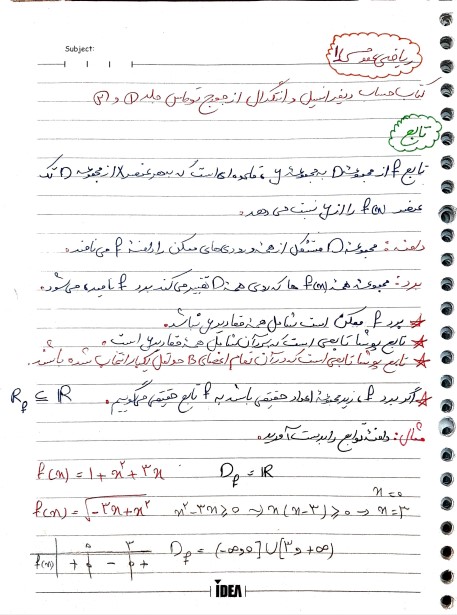 Subject:
ریاضی عمومی ۱
کتاب حساب دیفرانسیل و انتگرال از جورج توماس جلد ① و ②
تابع
تابع f از مجموعه D به مجموعه y، قاعده‌ای است که به هر عنصر x از مجموعه D تک
عنصر f(x) را از y نسبت می دهد.
دامنه: مجموعه D متشکل از همه ورودی‌های ممکن را دامنه f می‌نامند.
برد: مجموعه همه f(x) ها که روی همه D تغییر می‌کند برد f نامیده می‌شود.
★ برد f ممکن است شامل همه مقادیر y نباشد.
★ تابع پوشا تابعی است که برد آن شامل همه مقادیر y است.
★ تابع پوشا تابعی است که در آن تمام اعضای B حداقل یکبار انتخاب شده باشند.
★ اگر برد f، زیرمجموعه اعداد حقیقی باشد به f تابع حقیقی می‌گوییم. R_f ⊆ ℝ
مثال: دامنه توابع را بدست آورید.
f(x) = 1 + x² + ۳x D_f = ℝ
f(x) = √(-۳x + x²) x² - ۳x ≥ 0 → x(x - ۳) ≥ 0 → x = 0 x = ۳
0 ۳
f(x) + 0 - 0 + D_f = (-∞, 0] ∪ [۳, +∞)
IDEA